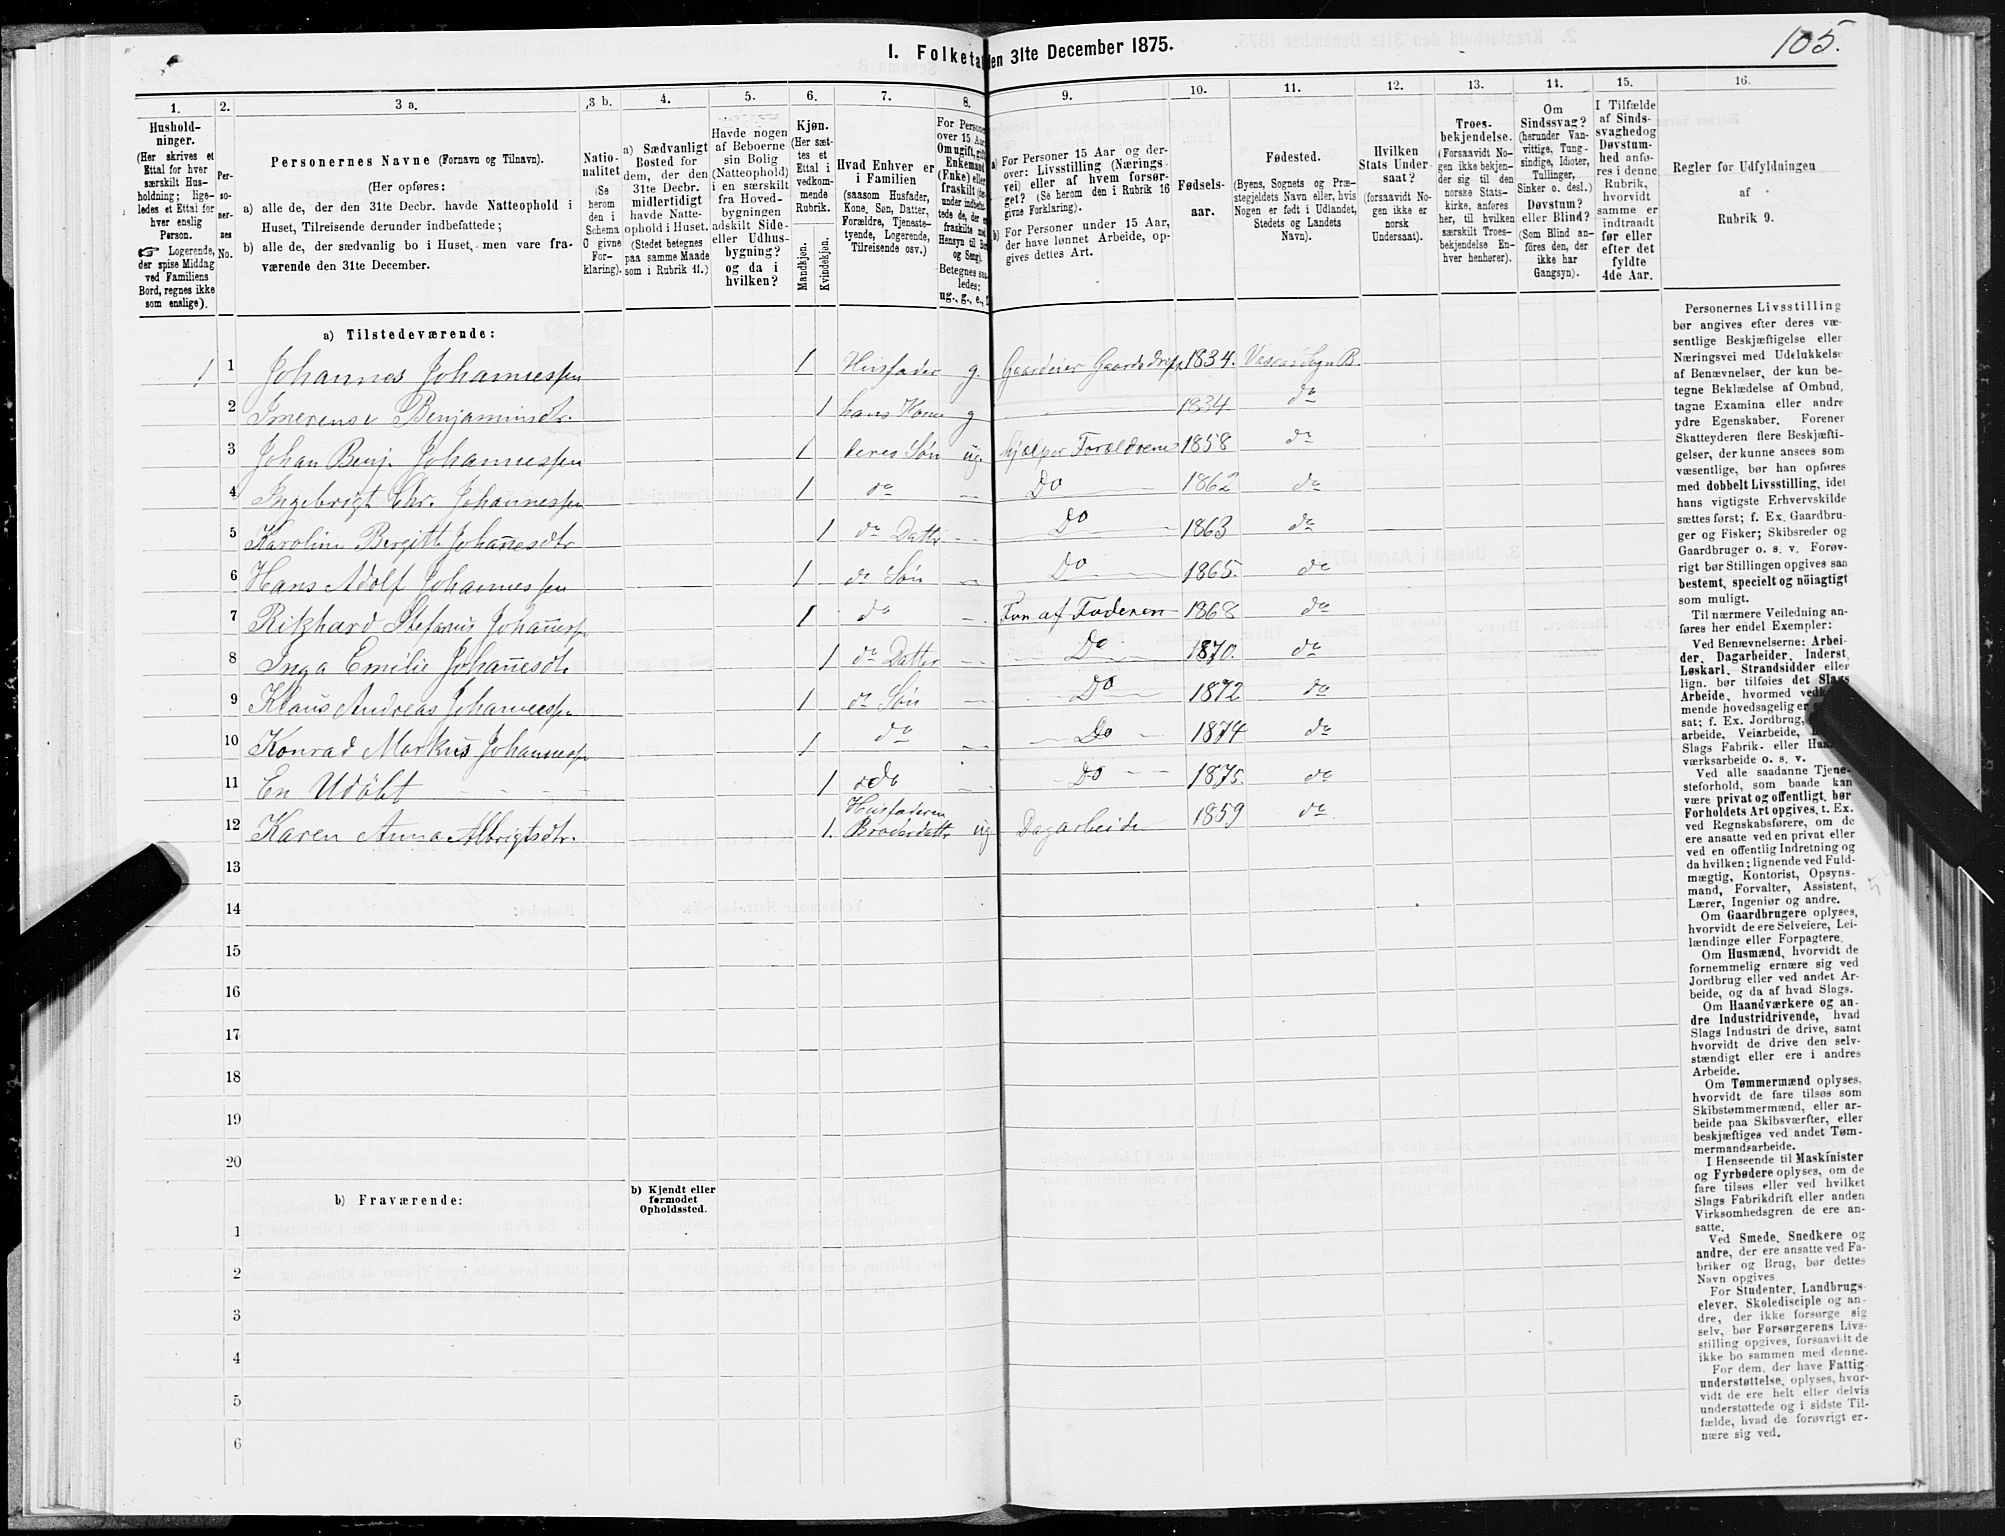 105.
1. Folketal den 31te December 1875.
1. 2. 3 a. 3 b. 4. 5. 6. 7. 8. 9. 10. 11. 12. 13. 14. 15. 16.
Hushold-
ninger.
(Her skrives et
Ettal for hver
særskilt Hus-
holdning; lige-
ledes et Ettal for
hver enslig
Person.
☞ Logerende,
der spise Middag
ved Familiens
Bord, regnes ikke
som enslige).
Per-
so-
ner-
nes
No.
Personernes Navne (Fornavn og Tilnavn).
(Her opføres:
a) alle de, der den 31te Decbr. havde Natteophold i
Huset, Tilreisende derunder indbefattede;
b) alle de, der sædvanlig bo i Huset, men vare fra-
værende den 31te December.
Natio-
nalitet
(Se
herom
den i
Schema
C givne
For-
klaring).
a) Sædvanligt
Bosted for
dem, der den
31te Decbr.
midlertidigt
havde Natte-
ophold i Huset.
(Stedet betegnes
paa samme Maade
som i Rubrik 11.)
Havde nogen
af Beboerne
sin Bolig
(Natteophold)
i en særskilt
fra Hoved-
bygningen
adskilt Side-
eller Udhus-
bygning?
og da i
hvilken?
Kjøn.
(Her sæt-
tes et
Ettal i
vedkom-
mende
Rubrik.
Mandkjøn.
Kvindekjøn.
Hvad Enhver er
i Familien
(saasom Husfader,
Kone, Søn, Datter,
Forældre, Tjeneste-
tyende, Logerende,
Tilreisende osv.)
For Person
over 15 Aar
Om ugift, gift
Enkemand
(Enke) eller
fraskilt
Betegnes saa-
ledes:
ug., g., e.,
a) For Personer 15 Aar og der-
over: Livsstilling (Nærings-
vei) eller af hvem forsør-
get? (Se herom den i Rubrik 16
givne Forklaring).
b) For Personer under 15 Aar,
der have lønnet Arbeide, op-
gives dettes Art.
Fødsels-
aar.
Fødested.
(Byens, Sognets og Præ-
stegjeldets Navn eller, hvis
Nogen er født i Udlandet,
Stedets og Landets
Navn).
Hvilken
Stats Under-
saat?
(forsaavidt No-
gen ikke er
norsk
Undersaat).
Troes-
bekjendelse.
(Forsaavidt No-
gen ikke bekjen-
der sig til den
norske Stats-
kirke, anføres
her, til hvilken
særskilt Troes-
bekjendelse En-
hver henhører).
Om
Sindssvag?
(herunder Van-
vittige, Tung-
sindige, Idioter,
Tullinger,
Sinker o. desl.)
Døvstum?
eller Blind?
(Som Blind an-
føres den, der
ikke har
Gangsyn).
I Tilfælde
af Sinds-
svaghed og
Døvstum-
hed anfø-
res i denne
Rubrik,
hvorvidt
samme er
indtraadt
før eller
efter det
fyldte
4de Aar.
Regler for Udfyldningen
af
Rubrik 9.
a) Tilstedeværende:
1 1 Johannes Johannessen 1 Husfader g. Gaardeier Gaardsdrift 1834. Sogn B.
2 Imerense Benjaminsdtr. 1 hans Kone g — 1834. do
3 Johan Benj. Johannessen 1 deres Søn ug hjælper Forældrene 1858 do
4 Ingebrigt Chr. Johannessen 1 do — Do 1862 do
5 Karoline Bergitte Johannesdtr 1 do Datter — Do 1863 do
6 Hans Adolf Johannessen 1 do Søn — Do 1865. do
7 Rikhard Stefanus Johanness. 1 do — af Faderen 1868 do
8 Inga Emilie Johannesdtr 1 do Datter — Do 1870. do
9 Klaus Andreas Johannessen 1 do Søn — Do 1872 do
10 Konrad Markus Johannessen 1 do — Do 1874 do
11 En Udøbt — 1 do — Do 1875. do
12 Karen Anna Albrigtsdtr. 1. Husfaderen Broderdattr ug Dagarbeide 1859 do
13
14
15
16
17
18
19
20
b) Fraværende:
b) Kjendt eller
formodet
Opholdssted.
1
2
3
4
5
6
Personernes Livsstilling
bør angives efter deres væ-
sentlige Beskjæftigelse eller
Næringsvei med Udelukkelse
af Benævnelser, der kun be-
tegne Beklædelse af Ombud,
tagne Examina eller andre
ydre Egenskaber. Forener
Skatteyderen flere Beskjæfti-
gelser, der kunne ansees som
væsentlige, bør han opføres
med dobbelt Livsstilling, idet
hans vigtigste Erhvervskilde
sættes først; f. Ex. Gaardbru-
ger og Fisker; Skibsreder og
Gaardbruger o. s. v. Forøv-
rigt bør Stillingen opgives saa
bestemt, specielt og nöiagtigt
som muligt.
Til nærmere Veiledning an-
føres her endel Exempler:
Ved Benævnelserne: Arbei-
der, Dagarbeider, Inderst,
Løskarl, Strandsidder eller
lign. bør tilføies det Slags
Arbeide, hvormed ved
mende hovedsagelig er
sat; f. Ex. Jordbrug,
arbeide, Veiarbeide,
Slags Fabrik- eller
værksarbeide o. s. v.
Ved alle saadanne Tjene-
steforhold, som baade kan
være privat og offentlig, bør
Forholdets Art opgives, t. Ex.
ved Regnskabsførere, om de
ere ansatte ved en privat eller
ved en offentlig Indretning og
da hvilken; lignende ved Fuld-
mægtig, Kontorist, Opsyns-
mand, Forvalter, Assistent,
Lærer, Ingeniør og andre.
Om Gaardbrugere oplyses,
hvorvidt de ere Selveiere, Lei-
lændinge eller Forpagtere.
Om Husmænd, hvorvidt de
fornemmelig ernære sig ved
Jordbrug eller ved andet Ar-
beide, og da af hvad Slags.
Om Haandværkere og an-
dre Industridrivende, hvad
Slags Industri de drive, samt
hvorvidt de drive den selv-
stændigt eller ere i andres
Arbeide.
Om Tømmermænd oplyses,
hvorvidt de fare tilsøs som
Skibstømmermænd, eller ar-
beide paa Skibsværfter, eller
beskjæftiges ved andet Tøm-
mermandsarbeide.
I Henseende til Maskinister
og Fyrbødere oplyses, om de
fare tilsøs eller ved hvilket
Slags Fabrikdrift eller anden
Virksomhedsgren de ere an-
satte.
Ved Smede, Snedkere og
andre, der ere ansatte ved Fa-
briker og Brug, bør dettes
Navn opgives
For Studenter, Landbrugs-
elever, Skoledisciple og an-
dre, der ikke forsørge sig
selv, bør Forsørgerens Livs-
stilling opgives, forsaavidt de
ikke bo sammen med denne.
For dem, der have Fattig-
understøttelse, oplyses, hvor-
vidt de ere helt eller delvis
understøttede og i sidste Til-
fælde, hvad de forøvrigt er-
nære sig ved.